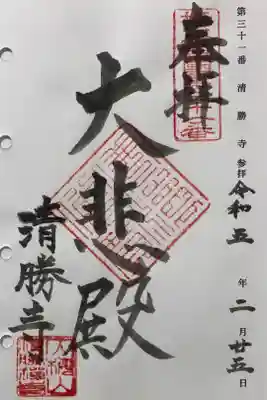 第三十一番 清勝寺 参拝 令和五年二月廿五日
奉拝
大悲殿
清勝寺